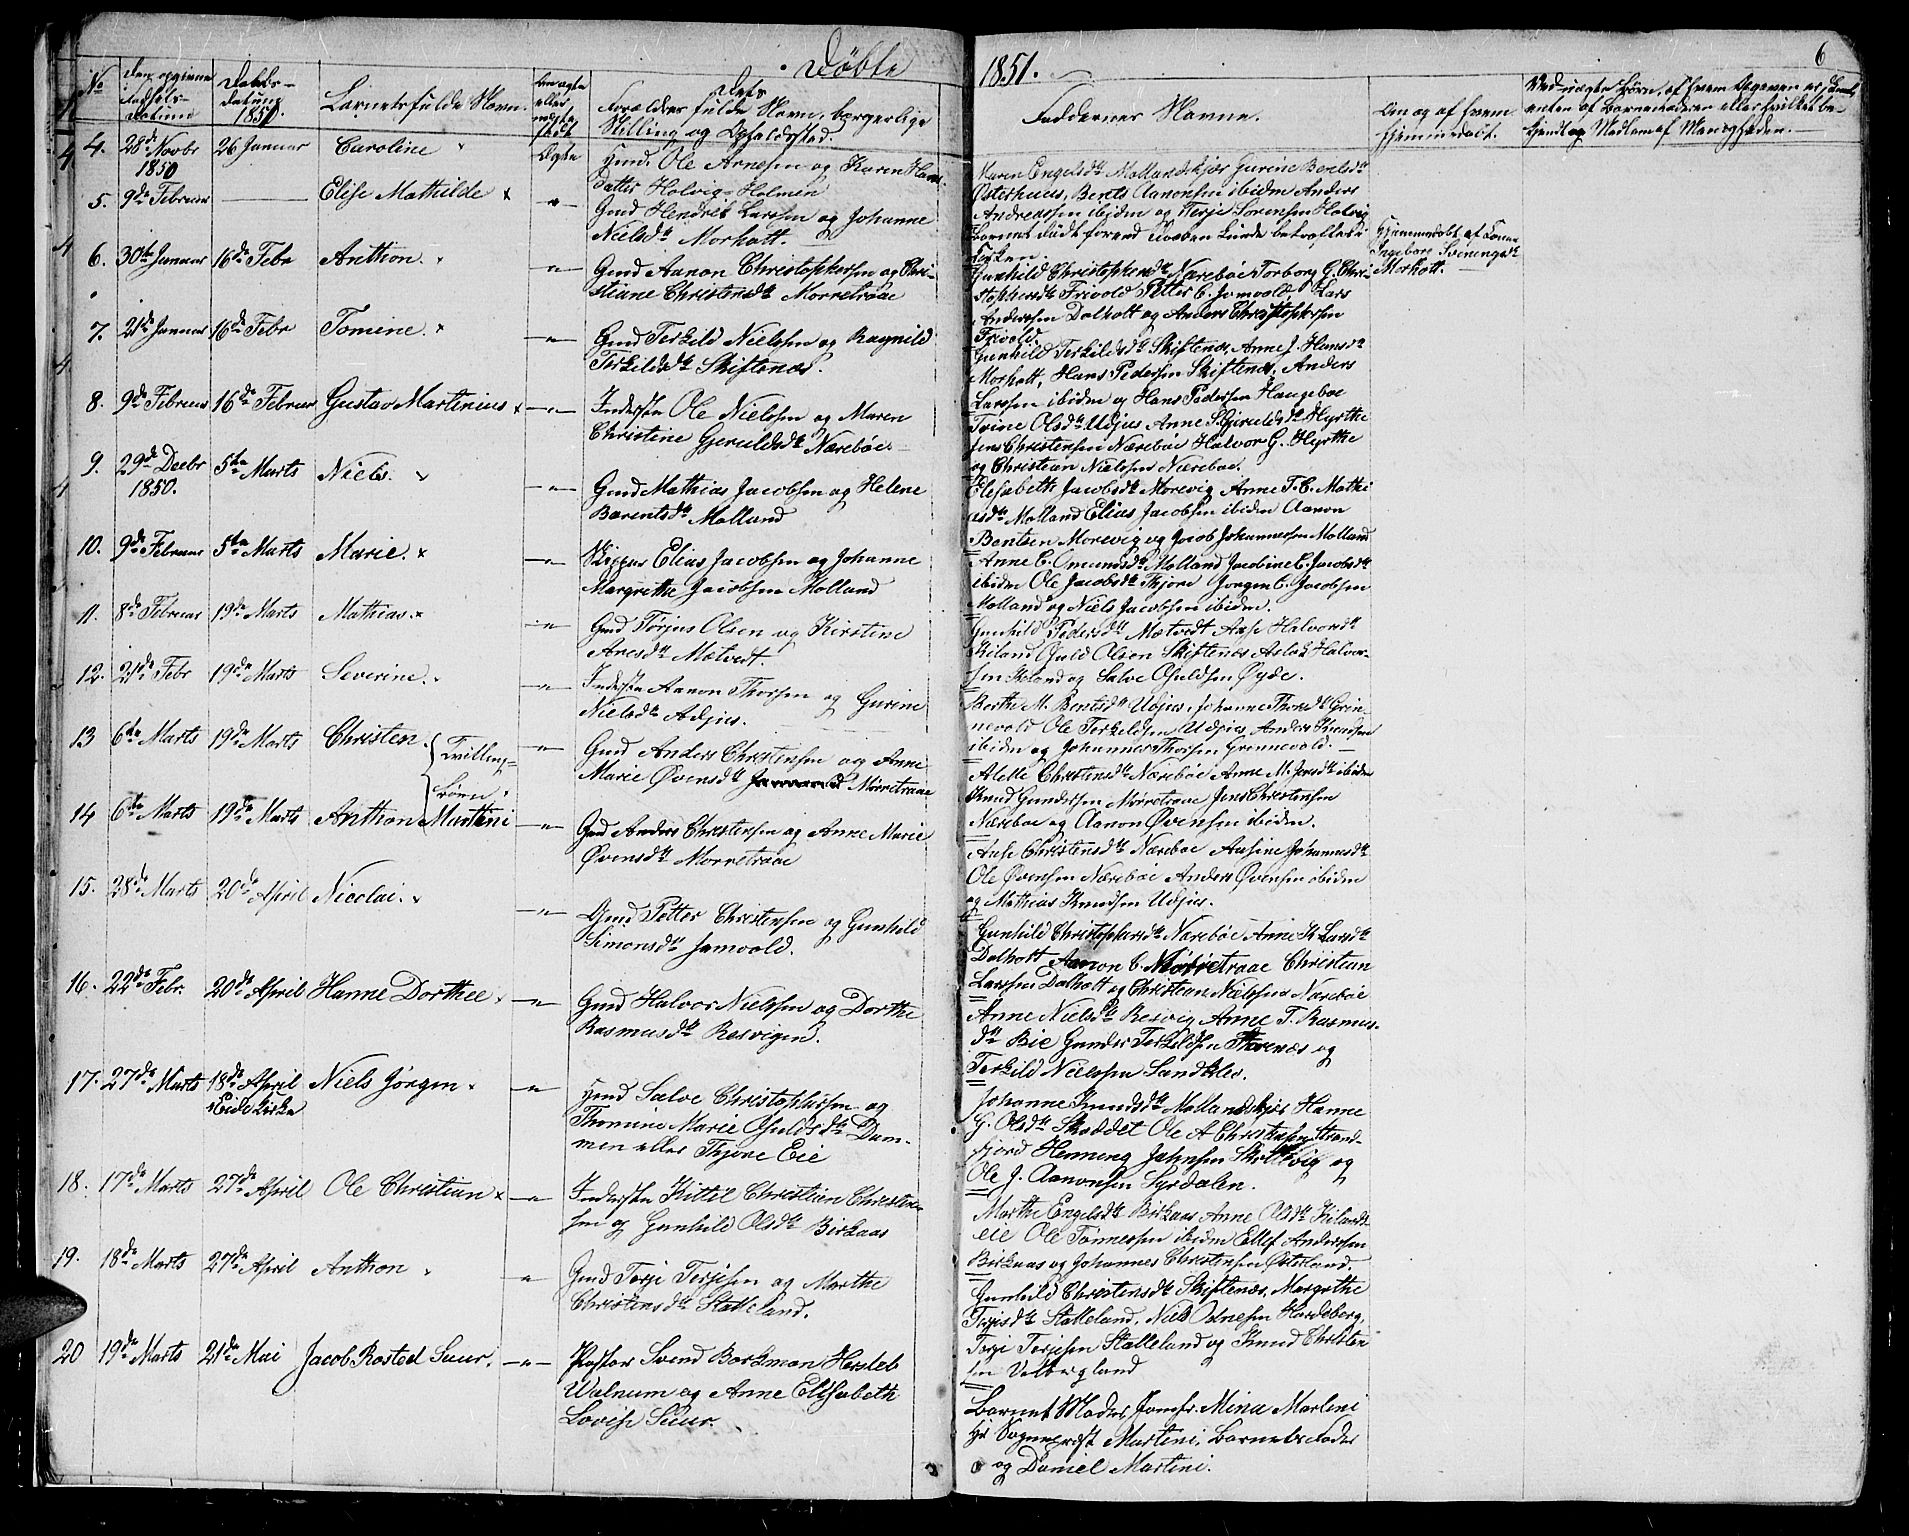 Döbte
1851.
6
No
Den opgivne
Fødsels-
Datum
Daabs-
Datum
1851.
Barnets fulde Navn.
uægte
eller
Forældres fulde Navn, borgerlige
Stilling og Opholdssted.
Faddernes Navne.
Om og af hvem
hjemmedøbt.
Ved uægte Børn, af hvem Opgiven er
4. 28de Novbr 1850
26 Januar
Caroline
Ægte
Gmd. Ole Arnesen og Karen Hans
Datter Holvig-Holmen
Karen Engelsdtr Mollandskjær Gurine Bentsdtr
Osterhuus, Bernts Aanonsen ibidm Anders
Andreassen ibidem og Terje Sørensen Holvig
5. 9de Februar
Elise Mathilde
Gmd Hendrik Larsen og Johanne
Nielsdtr Morholt.
Barnet døde forend Daaben kunde bekræftes i
Kirken.
Hjemmedøbt af
Ingeborg
Morholt.
6. 30te Januar
16de Febr
Anthon.
Gmd Aanon Christophersen og Chri-
stiane Christensdtr Morretraae
Gunhild Christophersdtr Næreböe Torborg G. Chri-
stophersdtr Frivold Petter C. Jomvold, Lars
Anderssen Dalholt og Anders Christophersen
Frivold.
7. 21de Januar
16de Febr
Tomine.
Gmd Terkild Nielssen og Ragnild
Terkildsdtr Skiftenæs.
Gunhild Terkildsdtr Skiftenæs, Anne J. Hansdtr
Morholt, Hans Pedersen Skiftenæs, Anders
Larssen ibidem og Hans Pedersen Haugeboe
8. 9de Februar
16de Februar
Gustav Martinius
Inderste Ole Nielssen og Maren
Christine Gjeruldsdtr Næreböe.
Trine Olsdtr Udjus Anne Gjeruldsdtr Hyrthe
Jens Christensen Næreböe Halvor G. Hyrthe
og Christian Nielssen Næreböe.
9. 29de Decbr 1850.
5te Marts
Niels.
Gmd Mathias Jacobsen og Helene
Barentsdtr Molland
Elisabeth Jacobsdtr Morevig Anne T. C. Mathi
asdtr Molland Elias Jacobsen ibidem Aanon
Bentsen Morevig og Jacob Johannessen Molland
10. 9de Februar
5te Marts
Marie.
Skipper Elias Jacobsen og Johanne
Margrethe Jacobsen Molland
Anne C. Omundsdtr Molland Jacobine C. Jacobsdtr
ibidem Ole Jacobsdtr Thjore Jørgen C. Jacobsen
Molland og Niels Jacobsen ibidem.
11. 8de Februar
19de Marts
Mathias.
Gmd Tørjus Olsen og Kirstine
Aresdtr Mætvedt.
Gunhild Pedersdtr Mætvedt Aase Halvorsdtr
Kiland Osuld Olsen Skiftenæs Aslak Halvor-
sen Kiland og Salve Osuldsen Øyde.
12. 21de Febr
19de Marts
Severine.
Inderste Aanon Thorsen og Gurine
Nielsdtr Udjus.
Berthe M. Bentsdtr Udjus, Johanne Thorsdtr Grön-
nevold Ole Terkildsen Udjus Anders Knudsen
ibidm og Johannes Thorsen Grønnevold.
13 6te Marts
19de Marts
Christen
Tvilling-
børn
Gmd Anders Christensen og Anne
Marie Øvensdtr Mörretraae
Aletle Christensdtr Næreböe Anne M. Jensdtr ibidm
Knud Gundersen Mörretraae Jens Christensen
Næreböe og Aanon Øvensen ibidem.
14 6te Marts
19de Marts
Anthon Martini
Gmd Anders Christensen og Anne Marie
Øvensdtr Morretraae
Aase Christensdtr Næreböe Aasine Johannesdtr
Ole Øvensen Næreböe Anders Øvensen ibidem
og Mathias Knudsen Udjus.
15. 28de Marts
20de April
Nicolai.
Gmd Petter Christensen og Gunhild
Simonsdtr Jomvold.
Gunhild Christophersdtr Næreböe Anne K Larsdtr
Dalholt Aanon C. Mörretraae Christian
Larssen Dalholt og Christian Nielssen Næreböe
16. 22de Febr.
20de April
Hanne Dorthee
Gmd Halvor Nielssen og Dorthe
Rasmusdtr Resvigen.
Anne Nielsdtr Resvig Anne T. Rasmus-
dtr Bie Gunder Terkildsen og
Terkild Nielssen Landvlev.
17. 27de Marts
18de April
i Eide Kirke
Niels Jørgen
Gmd Salve Christophersen og
Thomine Marie Osuldsdtr Dam-
men eller Thjore Eie
Johanne Knudsdtr Mollandskjær Hanne
G. Olsdtr Skaddet Ole A Christensen Strand-
fjord Henning Jahnsen og
Ole J. Aanonsen Syrdalen.
18. 17de Marts
27de April
Ole Christian
Inderste Kittil Christian Christen-
sen og Gunhild Olsdtr Birkaas
Marthe Engelsdtr Birkaas Anne Olsdtr Kilands-
eie Ole Tønnessen ibidem Ellef Anderssen
Birkaas og Johannes Christensen Østerland.
19. 18de Marts
27de April
Anthon
Gmd Terje Terjesen og Marthe
Christensdtr Stalleland.
Gunhild Christensdtr Skiftenæs, Margrethe
Terjisdtr Stalleland, Niels Hardeberg,
Terje Terjesen Stalleland og Knud Christen
sen
20 19de Marts
21de Mai
Jacob Rosted Suur.
Pastor Svend Borkman Hersleb
Walnum og Anne Elisabeth
Lovise Suur.
Barnets Moder, Jomfr. Mina Martini
Hr Sogneprest Martini, Barnets Fader
og Daniel Martini.